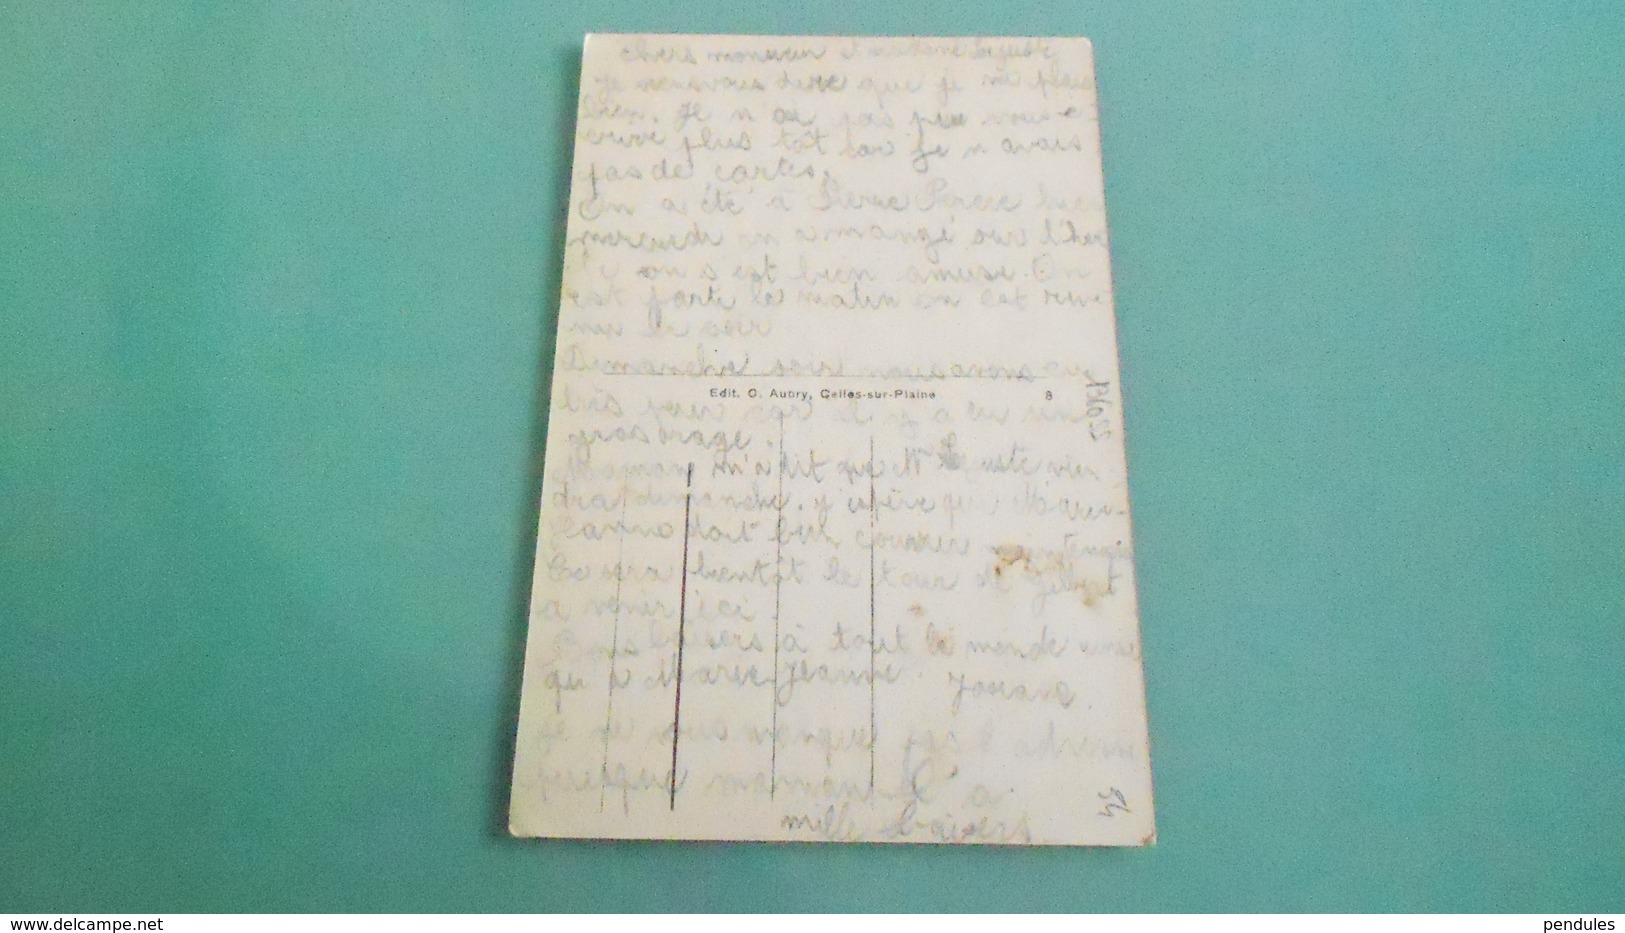 chers monsieur et madame
Je viens vous dire que je me plais
bien. Je n ai pas peu vous é
crire plus tôt car je n avais
pas de cartes.
On a été à Pierre Percée hier
mercredi on a mangé sur l'her
be on s est bien amusé. On
est parti le matin on est reve
nu le soir
Dimanche soir nous avons eu
Edit. C. Aubry, Celles-sur-Plaine 8
très peur car il y a eu un
gros orage.
Maman m'a dit que Mr vien
dra dimanche. j'espère que Marie-
Jeanne doit bien courrir maintenant
Ce sera bientôt le tour de Gilbert
a venir ici.
Bons baisers à tout le monde ainsi
qu à Marie-Jeanne. Josiane
je ne vous manque pas l adresse
puisque maman l'a
mille baisers
54
delcampe.net
pendules